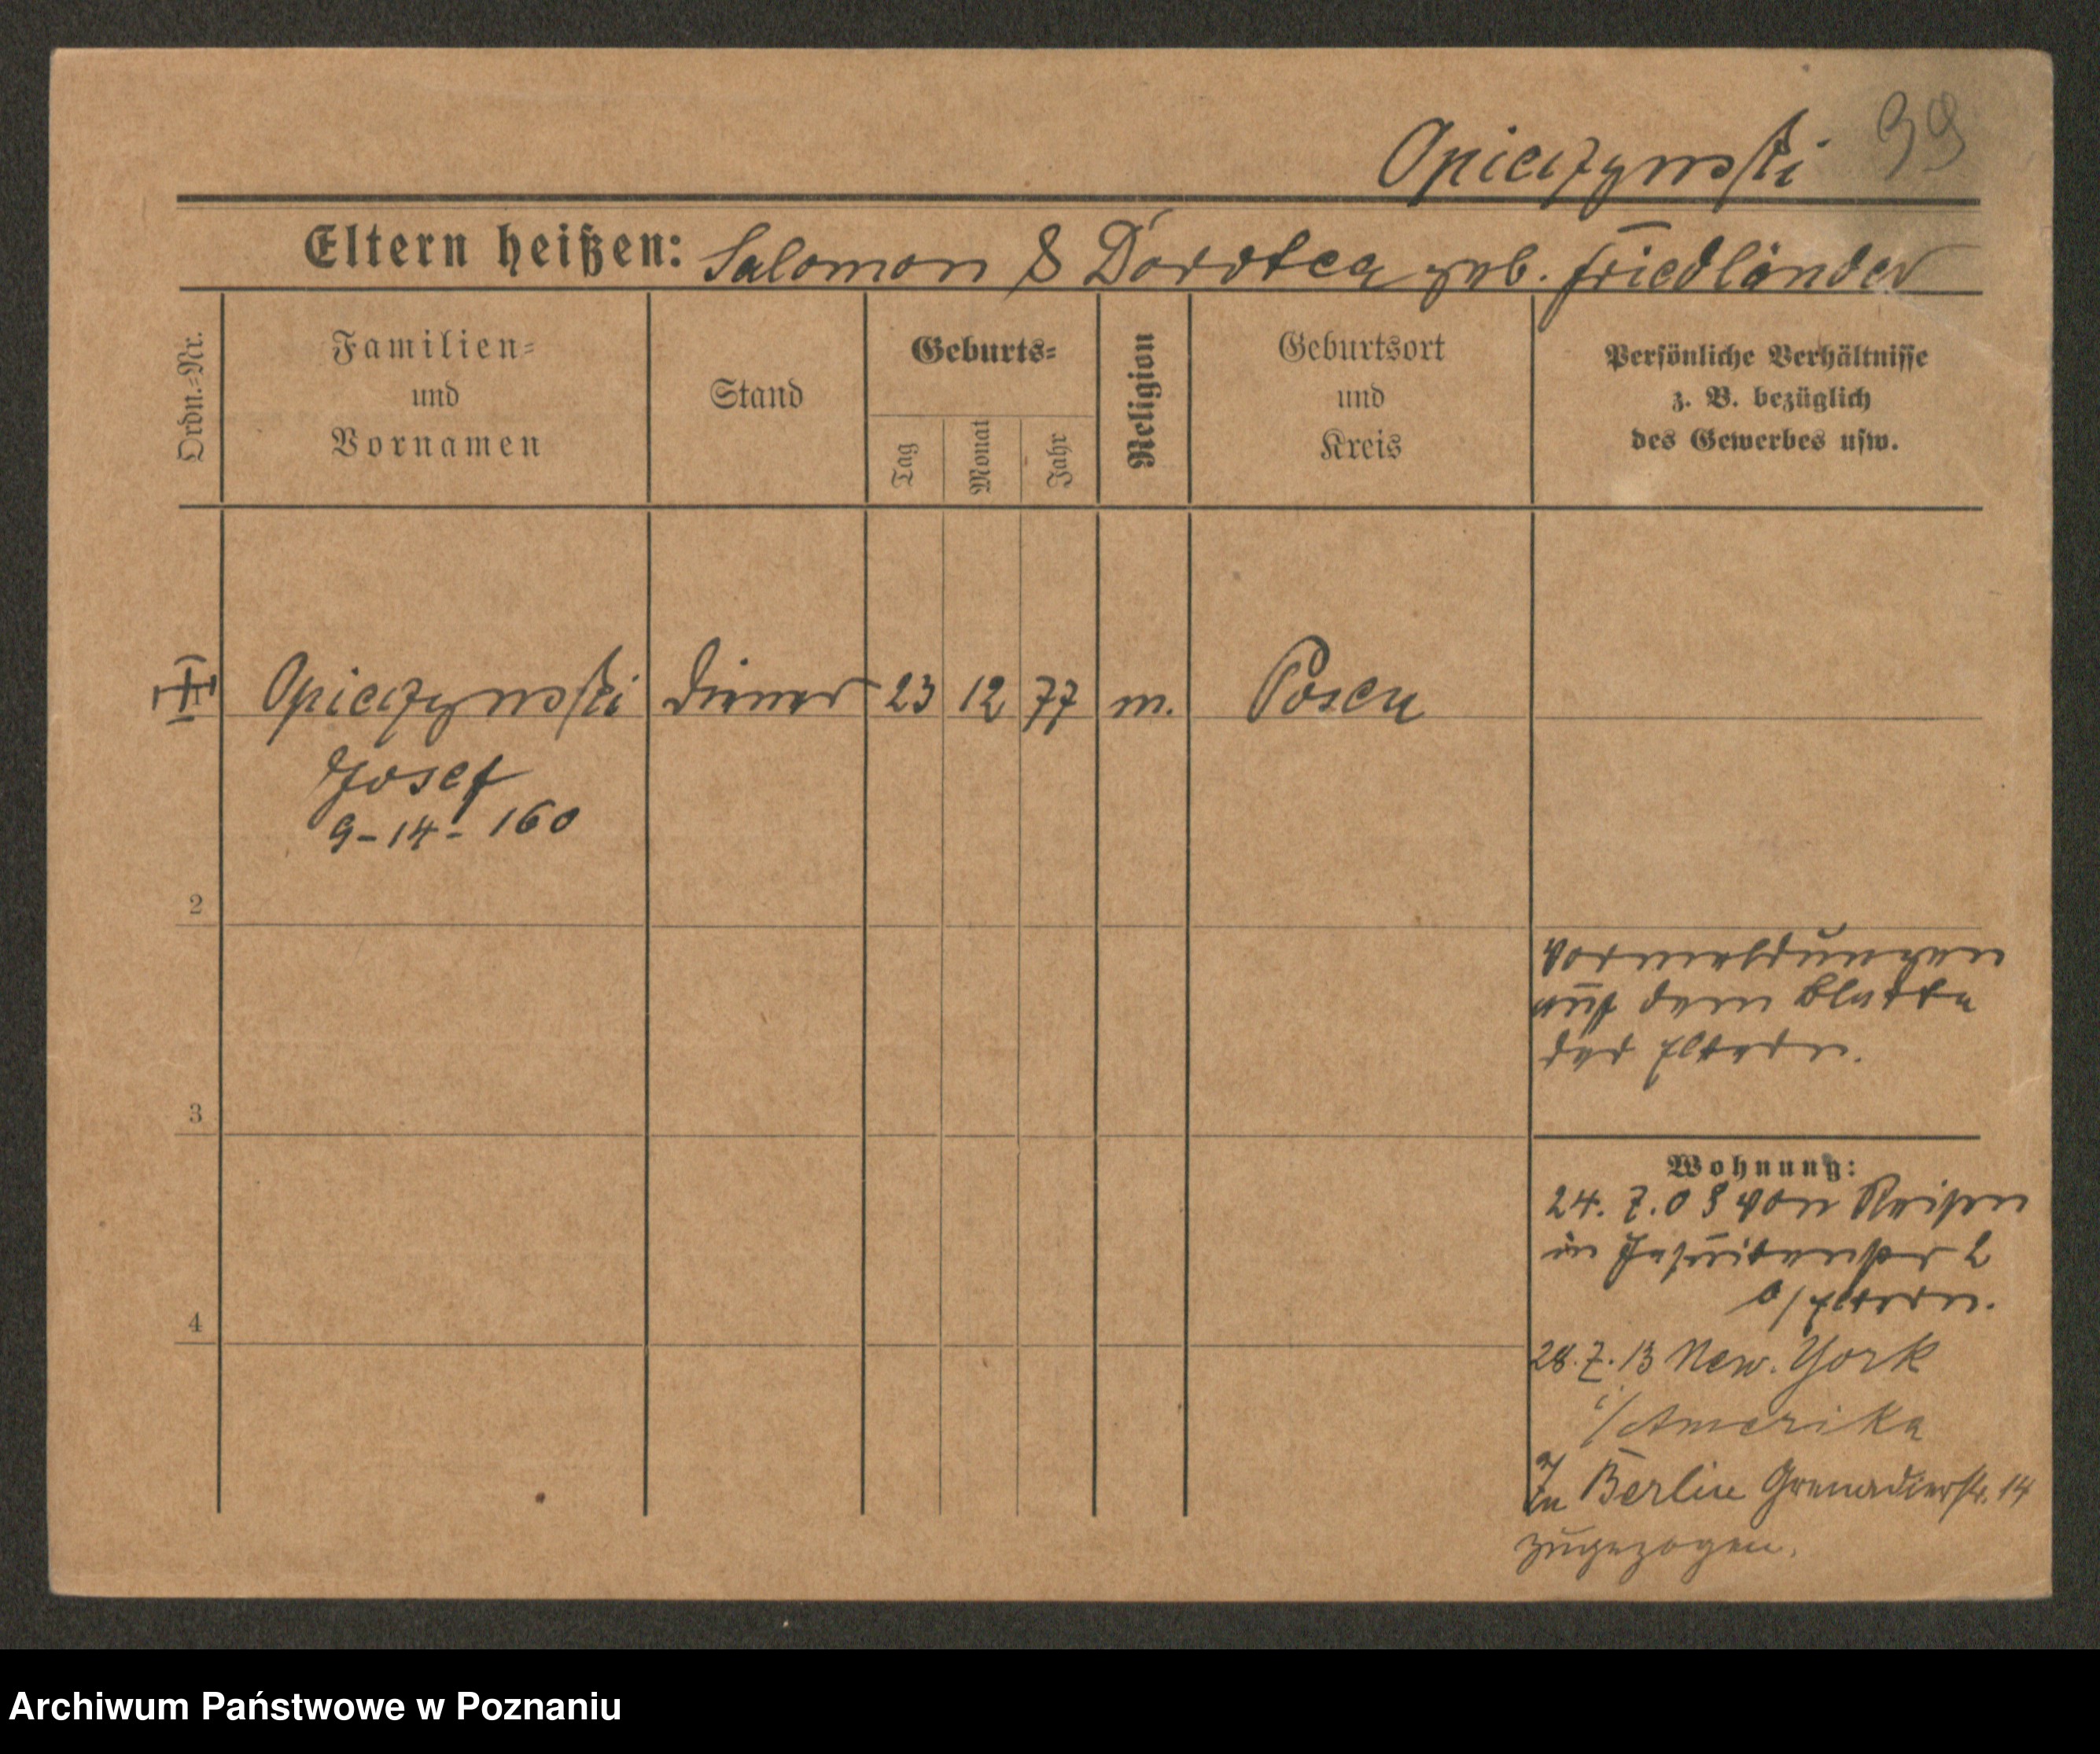 Opieczynski 39
Eltern heißen: Salomon & Dorotea geb. Friedländer
Ordn.-Nr.
Familien-
und
Vornamen
Stand
Geburts-
Tag
Monat
Jahr
Religion
Geburtsort
und
Kreis
Persönliche Verhältnisse
z. B. bezüglich
des Gewerbes usw.
Opieczynski Diener 23 12 77 m. Posen
Josef
9-14-160
2
Vormeldungen
auf dem Blatte
der Eltern.
3
Wohnung:
24. 7. 08 von Reisen
in Jesuitenstr 2
b/Eltern.
4
28. 7. 13 New. York
i/Amerika
In Berlin Grenadierstr. 14
zugezogen.
Archiwum Państwowe w Poznaniu